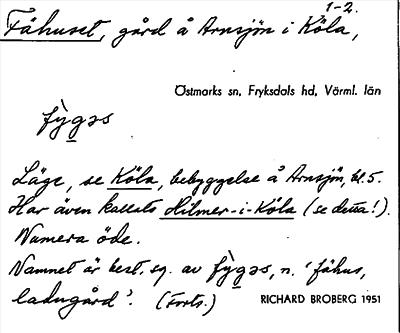 1-2.
Fähuset, gård å Arnsjön i Köla,
Östmarks sn, Fryksdals hd, Värml. län
fỳgəs
Läge, se Köla, bebyggelse å Arnsjön, bl. 5.
Har även kallats Hilmer-i-Köla (se detta!).
Numera öde.
Namnet är best. sg. av fỳgəs, n. 'fähus,
ladugård'. (Forts.)
RICHARD BROBERG 1951